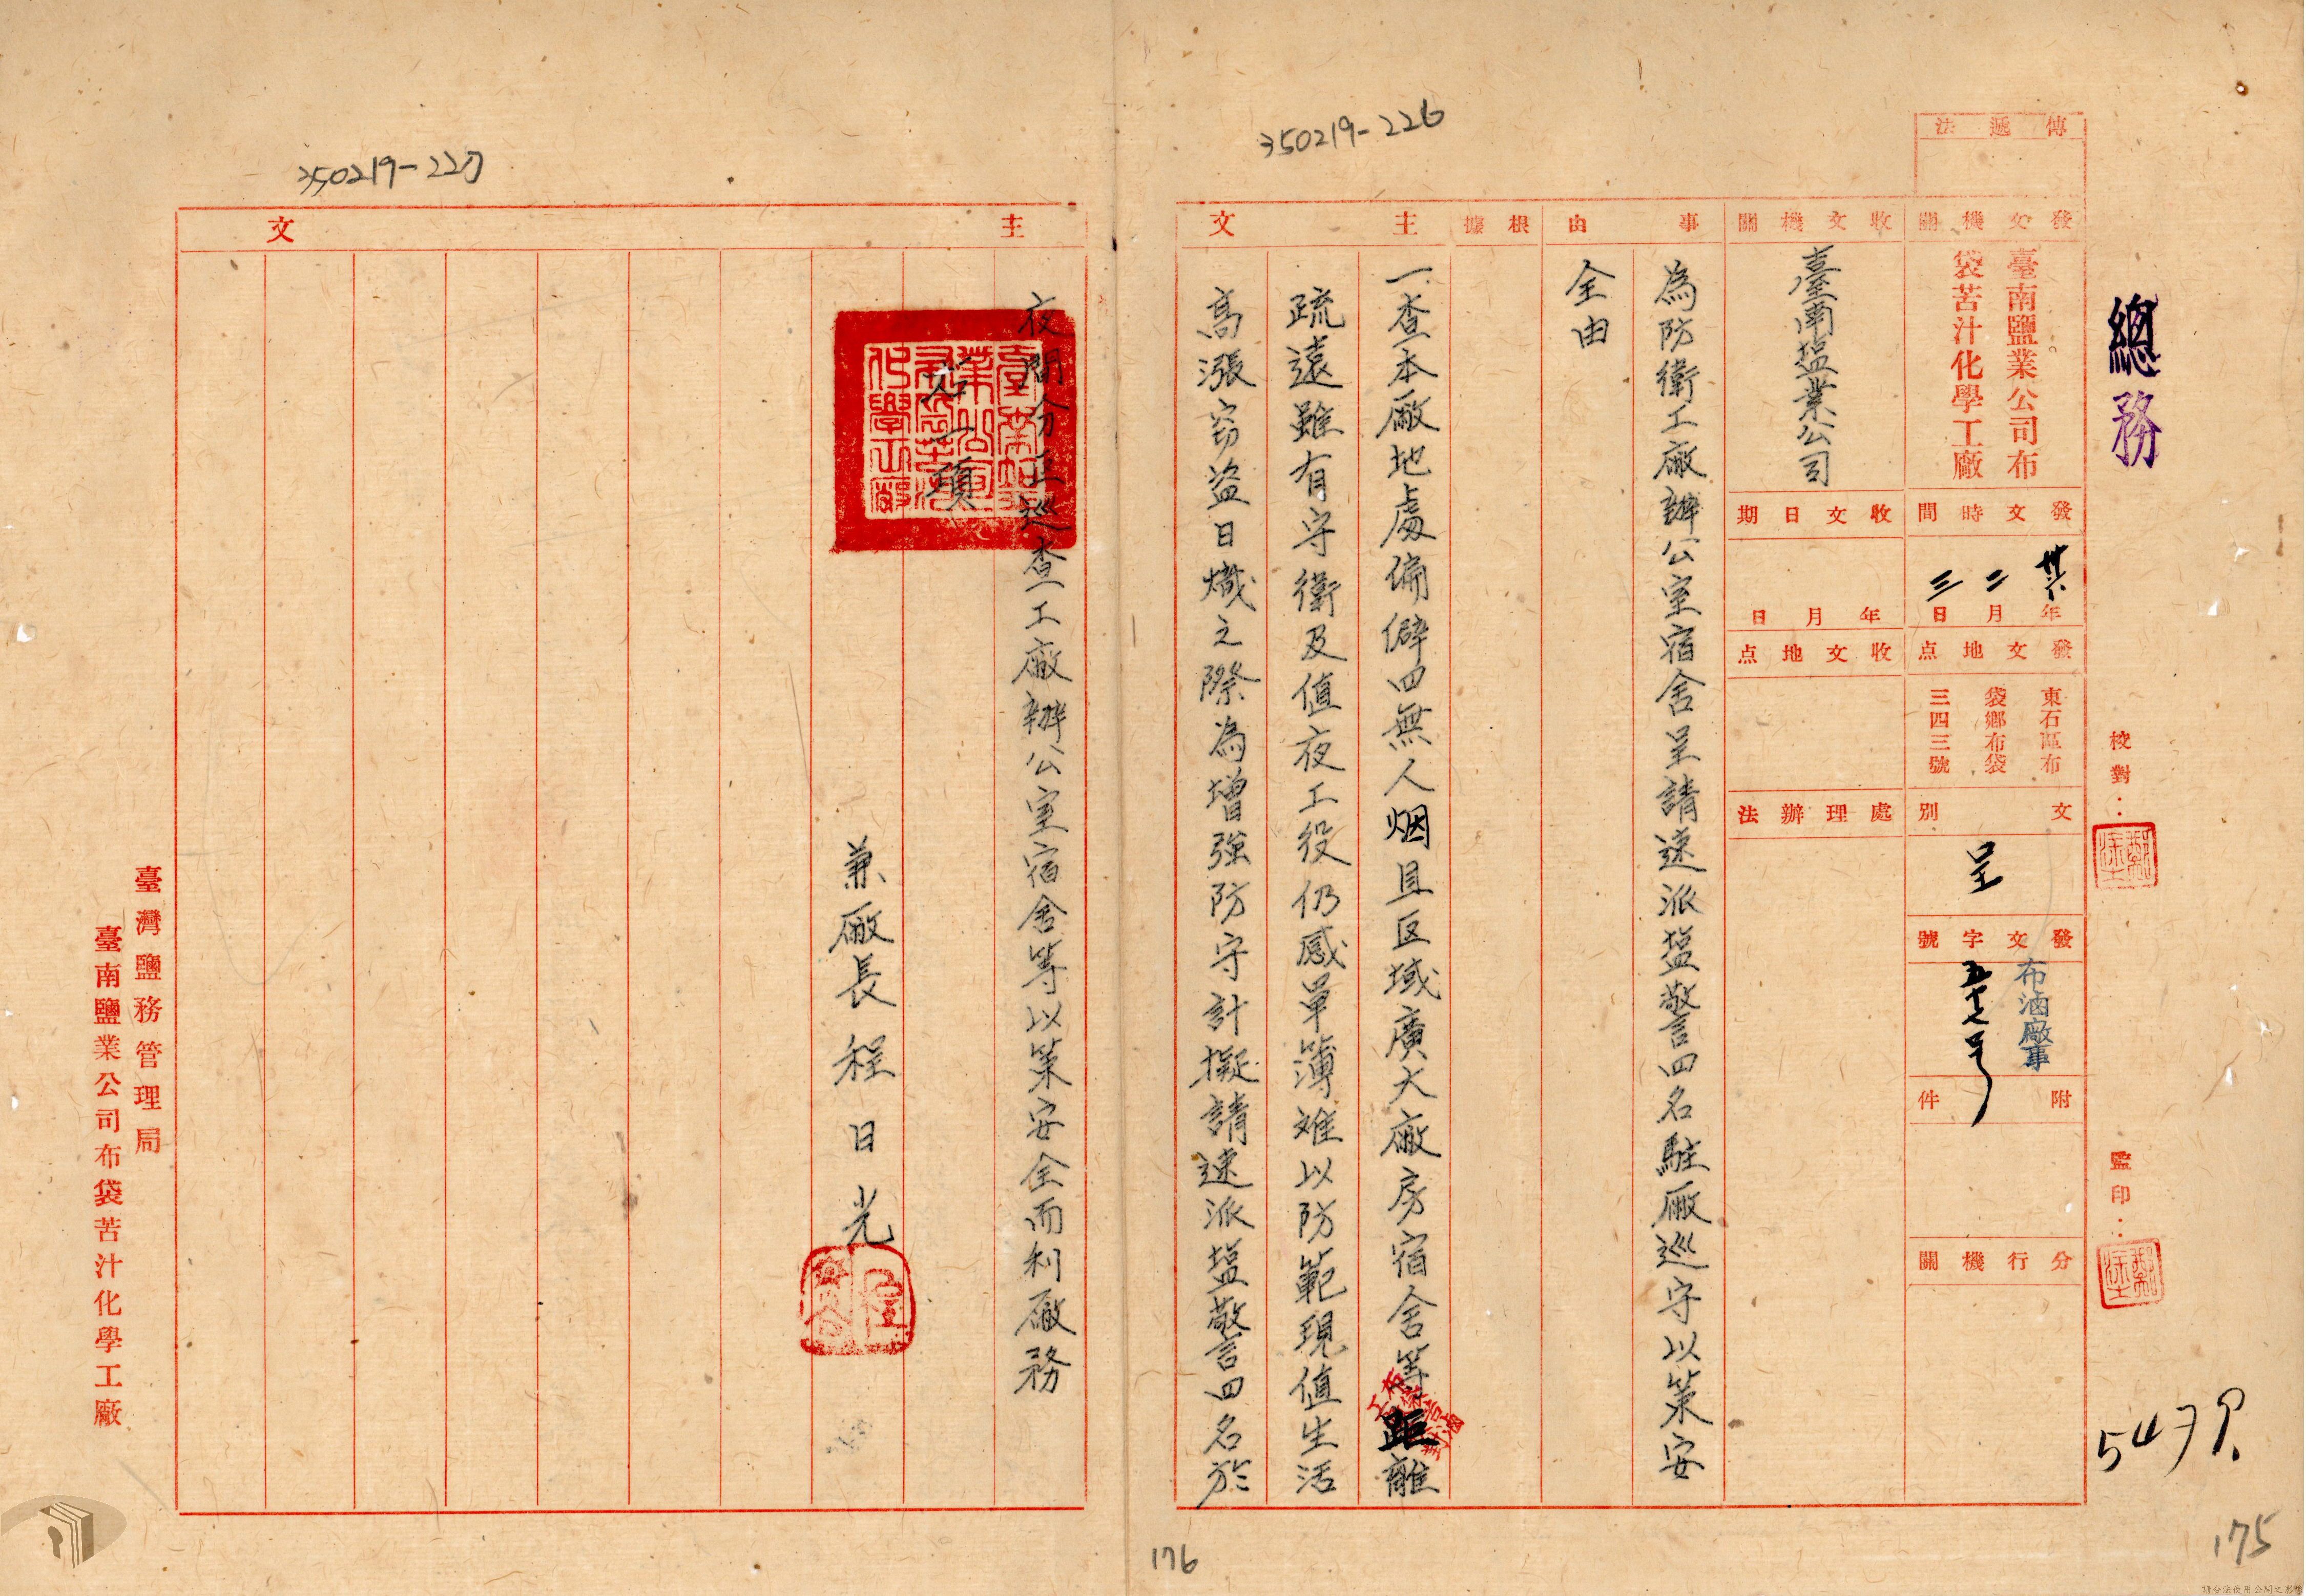 350219-226
350219-227
總務
校對：
監印：
傳遞法
發文機關
臺南鹽業公司布
袋苦汁化學工廠
發文時間
卅六年二月三日
發文地点
東石區布
袋鄉布袋
三四三號
文別
呈
發文字號
布滷廠事
五十七号
附件
分行機關
收文機關
臺南塩業公司
收文日期
年月日
收文地点
處理辦法
事由
為防衛工廠辦公室宿舍呈請速派塩警四名駐廠巡守以策安
全由
根據
主文
一、查本廠地處偏僻四無人烟且区域廣大廠房宿舍等距離
疏遠雖有守衛及值夜工役仍感單薄难以防範現值生活
高漲窃盜日熾之際為增強防守計擬請速派塩警四名於
175
主文
夜間分区巡查工廠辦公室宿舍等以策安全而利廠務
右一項
兼廠長程日光
臺灣鹽務管理局
臺南鹽業公司布袋苦汁化學工廠
176
請合法使用公開之影像